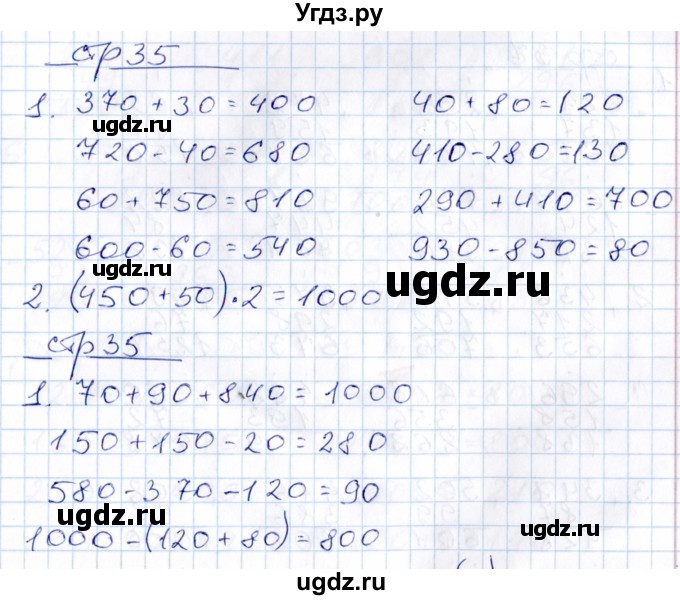 Угдз.ру
стр 35
1. 370 + 30 = 400 40 + 80 = 120
ugdz.ru
720 - 40 = 680 410 - 280 = 130
60 + 750 = 810 290 + 410 = 700
600 - 60 = 540 930 - 850 = 80
ugdz.ru
2. (450 + 50) · 2 = 1000
ugdz.ru
стр 35
1. 70 + 90 + 840 = 1000
150 + 150 - 20 = 280
580 - 370 - 120 = 90
ugdz.ru
1000 - (120 + 80) = 800
ugdz.ru
ugdz.ru